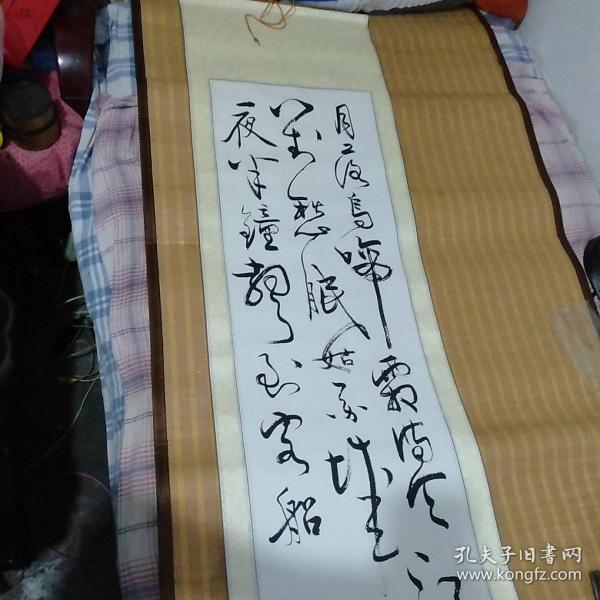 月落乌啼霜满天江
愁眠姑苏城
夜半钟声到客船
孔夫子旧书网
www.kongfz.com